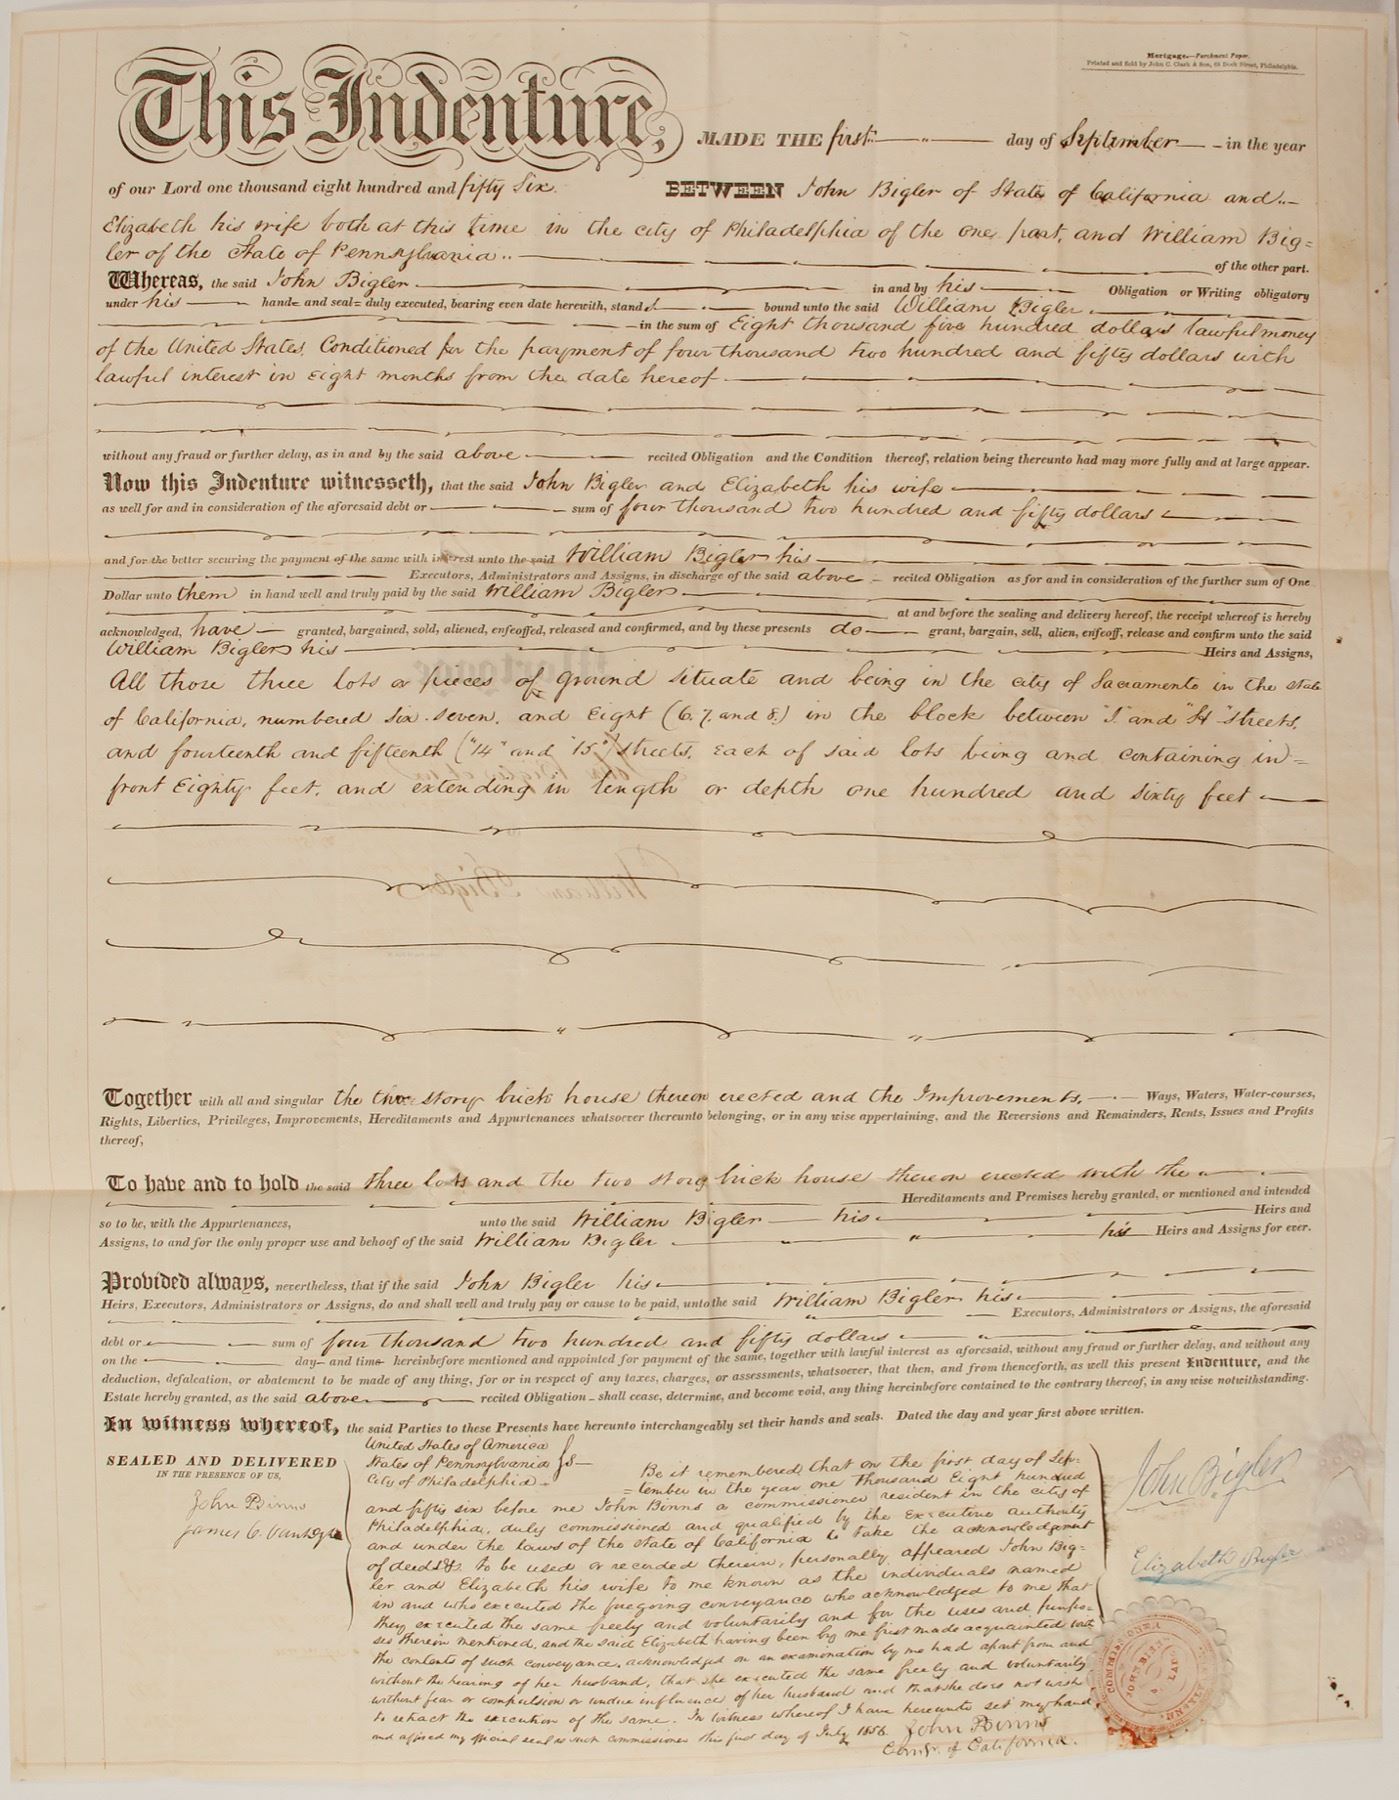 Mortgage.—Parchment Paper.
Printed and Sold by John C. Clark & Son, 68 Dock Street, Philadelphia.
This Indenture, MADE THE first day of September in the year
of our Lord one thousand eight hundred and fifty Six. BETWEEN John Bigler of State of California and
Elizabeth his wife both at this time in the city of Philadelphia of the one part, and William Big=
ler of the State of Pennsylvania of the other part.
Whereas, the said John Bigler in and by his Obligation or Writing obligatory
under his hand and seal duly executed, bearing even date herewith, stand bound unto the said William Bigler
in the sum of Eight thousand five hundred dollars lawful money
of the United States. Conditioned for the payment of four thousand two hundred and fifty dollars with
lawful interest in eight months from the date hereof
without any fraud or further delay, as in and by the said above recited Obligation and the Condition thereof, relation being thereunto had may more fully and at large appear.
Now this Indenture witnesseth, that the said John Bigler and Elizabeth his wife
as well for and in consideration of the aforesaid debt or sum of four thousand two hundred and fifty dollars
and for the better securing the payment of the same with interest unto the said William Bigler his
Executors, Administrators and Assigns, in discharge of the said above recited Obligation as for and in consideration of the further sum of One
Dollar unto them in hand well and truly paid by the said William Bigler
at and before the sealing and delivery hereof, the receipt whereof is hereby
acknowledged, have granted, bargained, sold, aliened, enfeoffed, released and confirmed, and by these presents do grant, bargain, sell, alien, enfeoff, release and confirm unto the said
William Bigler his Heirs and Assigns,
All those three lots or pieces of ground situate and being in the city of Sacramento in the state
of California, numbered six. seven. and Eight (6. 7. and 8.) in the block between "I" and "H" streets.
and fourteenth and fifteenth ("14" and "15") streets. Each of said lots being and containing in=
front Eighty feet. and extending in length or depth one hundred and sixty feet
Together with all and singular the two story brick house thereon erected and the Improvements, Ways, Waters, Water-courses,
Rights, Liberties, Privileges, Improvements, Hereditaments and Appurtenances whatsoever thereunto belonging, or in any wise appertaining, and the Reversions and Remainders, Rents, Issues and Profits
thereof,
To have and to hold the said three lots and the two story brick house thereon erected with the
Hereditaments and Premises hereby granted, or mentioned and intended
so to be, with the Appurtenances, unto the said William Bigler his Heirs and
Assigns, to and for the only proper use and behoof of the said William Bigler his Heirs and Assigns for ever.
Provided always, nevertheless, that if the said John Bigler his
Heirs, Executors, Administrators or Assigns, do and shall well and truly pay or cause to be paid, unto the said William Bigler his
Executors, Administrators or Assigns, the aforesaid
debt or sum of four thousand two hundred and fifty dollars
on the day and time hereinbefore mentioned and appointed for payment of the same, together with lawful interest as aforesaid, without any fraud or further delay, and without any
deduction, defalcation, or abatement to be made of any thing, for or in respect of any taxes, charges, or assessments, whatsoever, that then, and from thenceforth, as well this present Indenture, and the
Estate hereby granted, as the said above recited Obligation shall cease, determine, and become void, any thing hereinbefore contained to the contrary thereof, in any wise notwithstanding.
In witness whereof, the said Parties to these Presents have hereunto interchangeably set their hands and seals. Dated the day and year first above written.
SEALED AND DELIVERED
IN THE PRESENCE OF US,
John Binns
James C.
United States of America
State of Pennsylvania
City of Philadelphia
Be it remembered, that on the first day of Sep-
=tember in the year one thousand Eight hundred
and fifty six before me John Binns a commissioner resident in the city of
Philadelphia, duly commissioned and qualified by the Executive authority
and under the laws of the state of California to take the acknowledgement
of deeds &c. to be used or recorded therein, personally appeared John Big=
ler and Elizabeth his wife to me known as the individuals named
in and who executed the foregoing conveyance who acknowledged to me that
they executed the same freely and voluntarily and for the uses and purpo=
ses therein mentioned. and the said Elizabeth having been by me first made acquainted with
the contents of such conveyance. acknowledged on an examination by me had apart from and
without the hearing of her husband, that she executed the same freely and voluntarily
without fear or compulsion or undue influence of her husband and that she does not wish
to retract the execution of the same. In witness whereof I have hereunto set my hand
and affixed my official seal as such commissioner this first day of July 1856. John Binns
Comsr. of California.
John Bigler
Elizabeth Bigler
JOHN BINNS